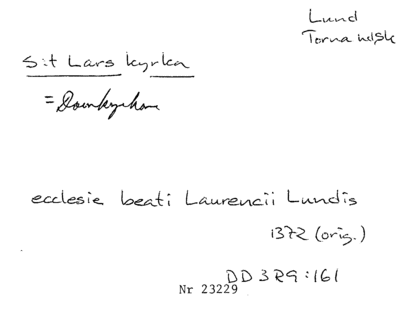 Lund
Torna hd, Sk
S:t Lars kyrka
= Domkyrkan
ecclesie beati Laurencii Lundis
1372 (orig.)
DD 3 R9:161
Nr 23229